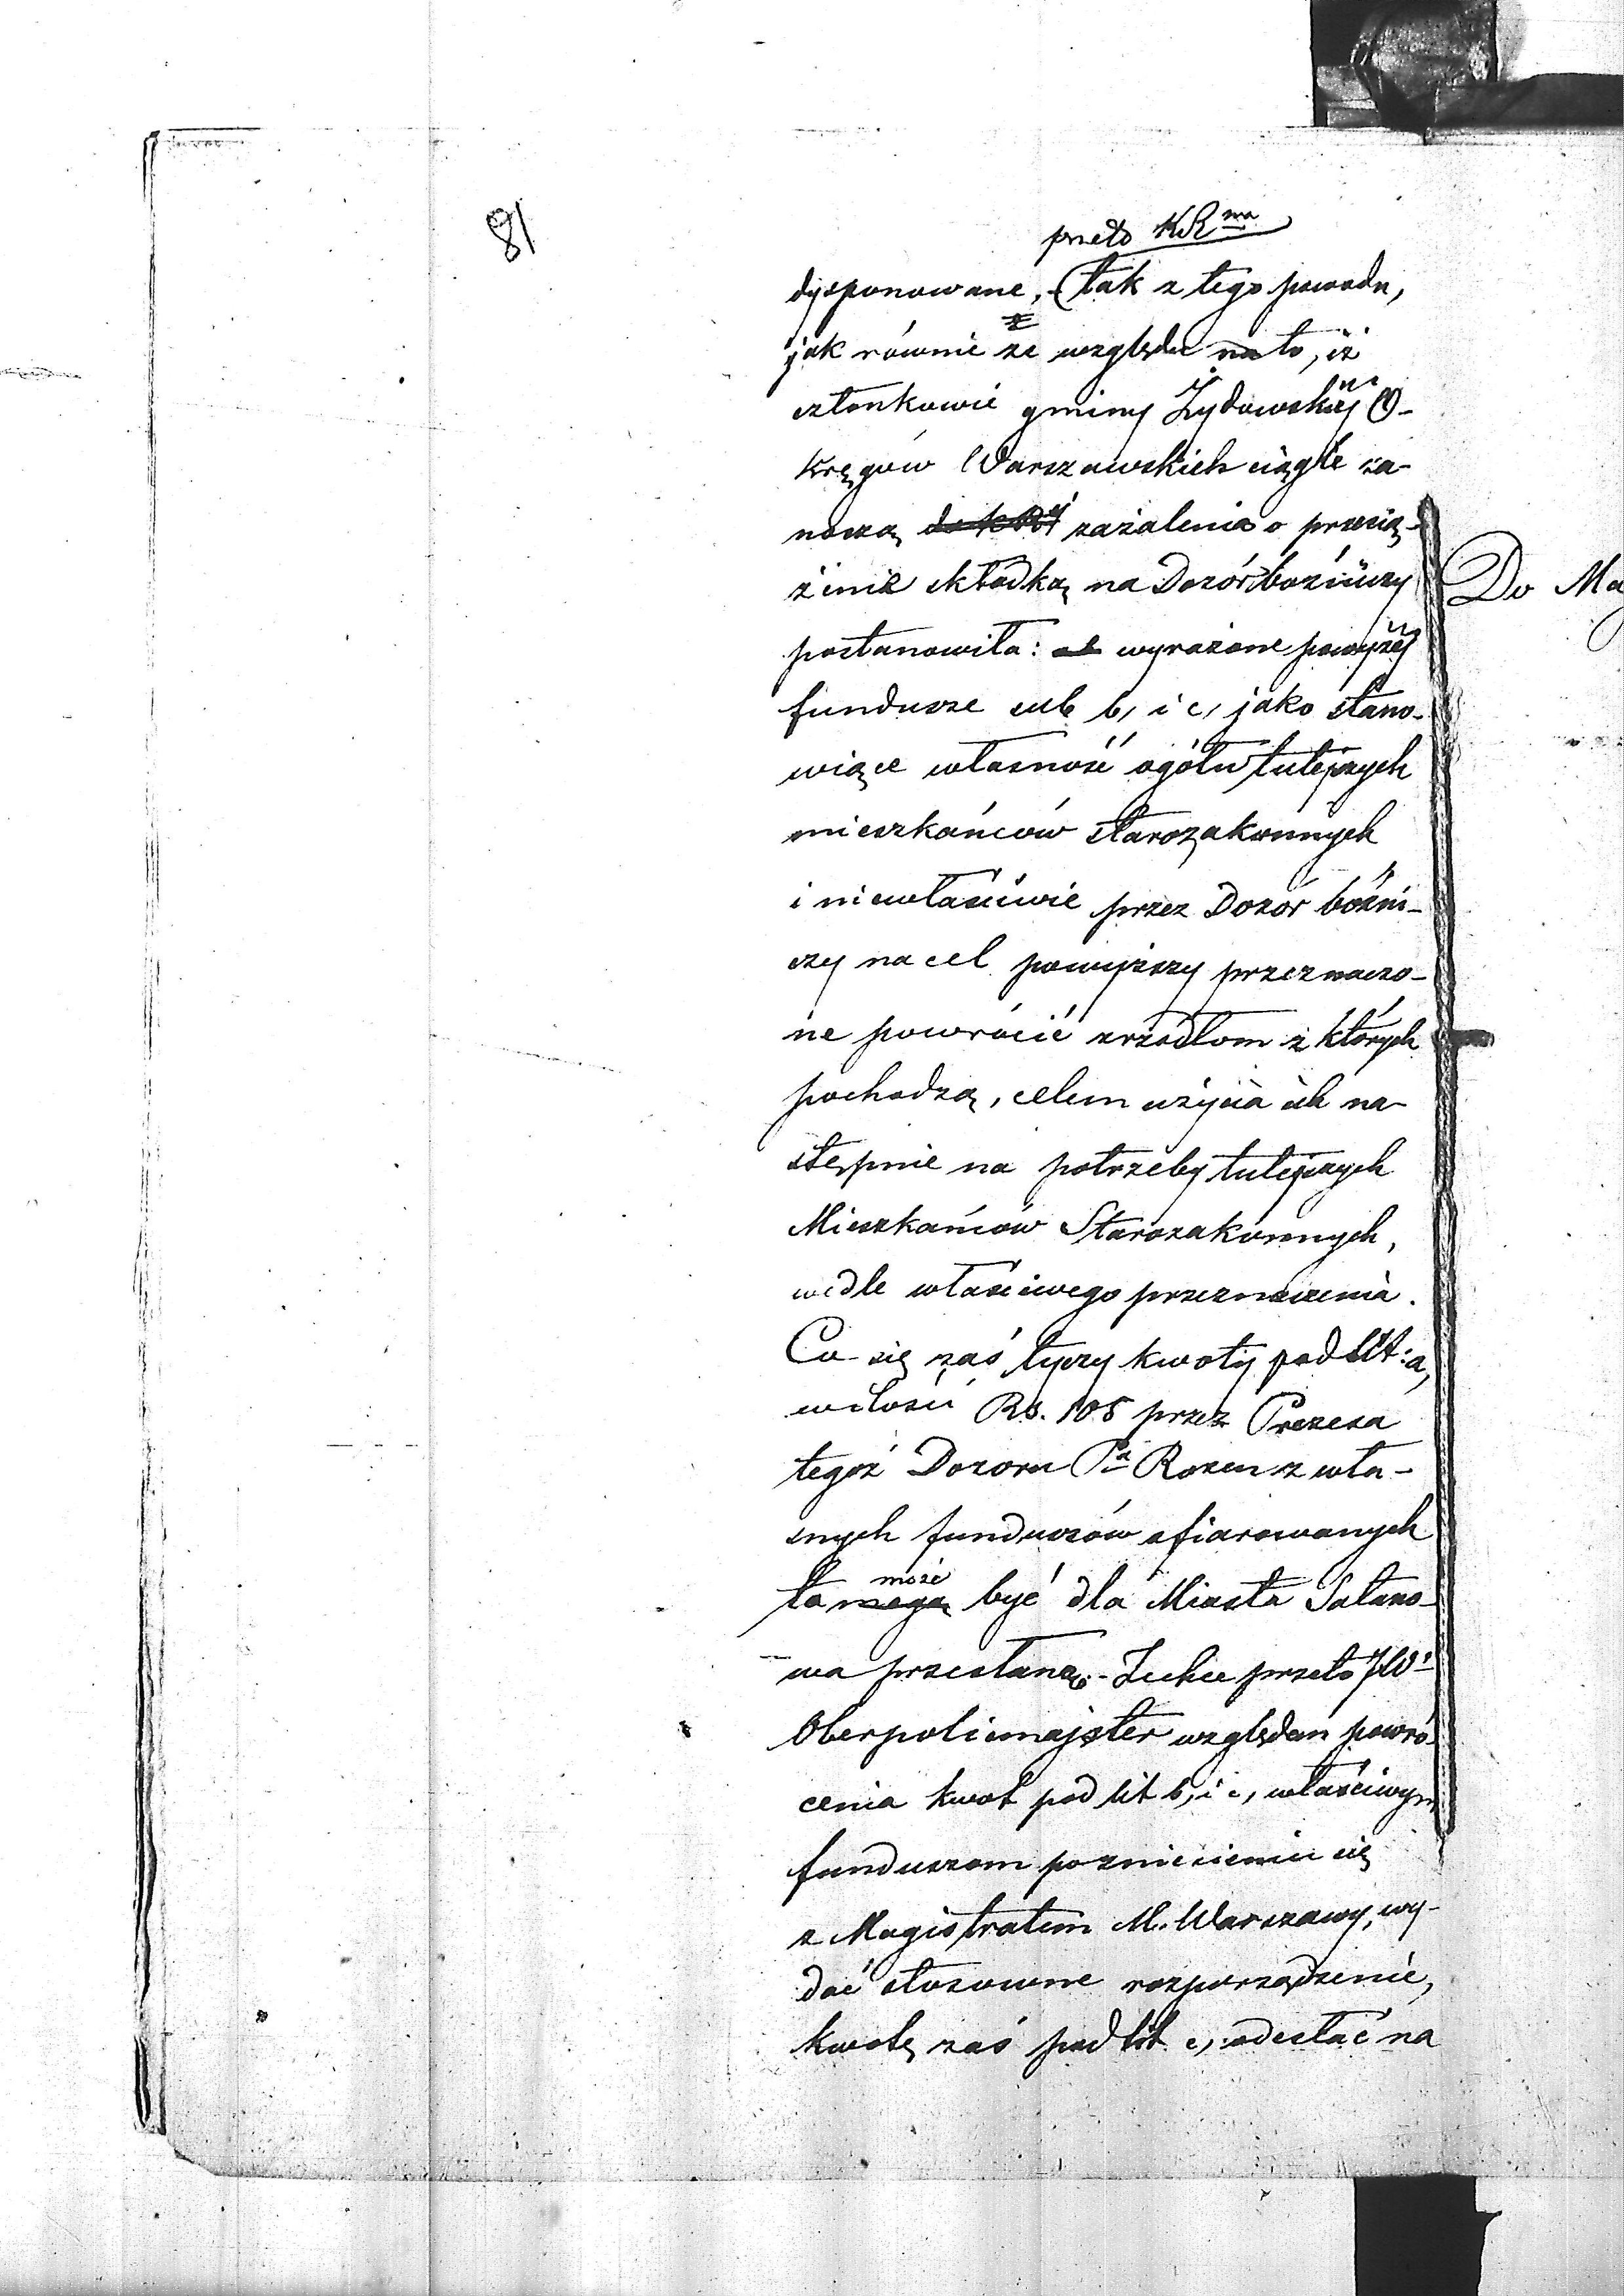 81
przeto KR ma
dysponowane, tak z tego powodu,
jak równie ze względu na to, iż
członkowie gminy Żydowskiej O-
kręgów Warszawskich ciągle za-
noszą do KRż zażalenia o przecią-
żenie składką na Dozór bóźniczy
postanowiła: wyrażone powyżej
fundusze sub b, i c, jako stano-
wiące własność ogółu tutejszych
mieszkańców starozakonnych
i niewłaściwie przez Dozór bóźni-
czy na cel powyższy przeznaczo-
ne powrócić zrzódłom z których
pochodzą, celem użycia ich na-
stępnie na potrzeby tutejszych
Mieszkańców Starozakonnych,
wedle właściwego przeznaczenia.
Co się zaś tyczy kwoty pod lit: a,
w ilości Rs. 105 przez Prezesa
tegoż Dozoru Pa Rosen z wła-
snych funduszów ofiarowanych
może
ta mogą być dla Miasta Satano-
wa przesłaną. Zechce przeto JW
Oberpolicmajster względem powró-
cenia kwot pod lit b, i c, właściwym
funduszom po zniesieniu się
z Magistratem M. Warszawy, wy-
dać stosowne rozporządzenie,
kwotę zaś pod lit c, odesłać na
Do Ma